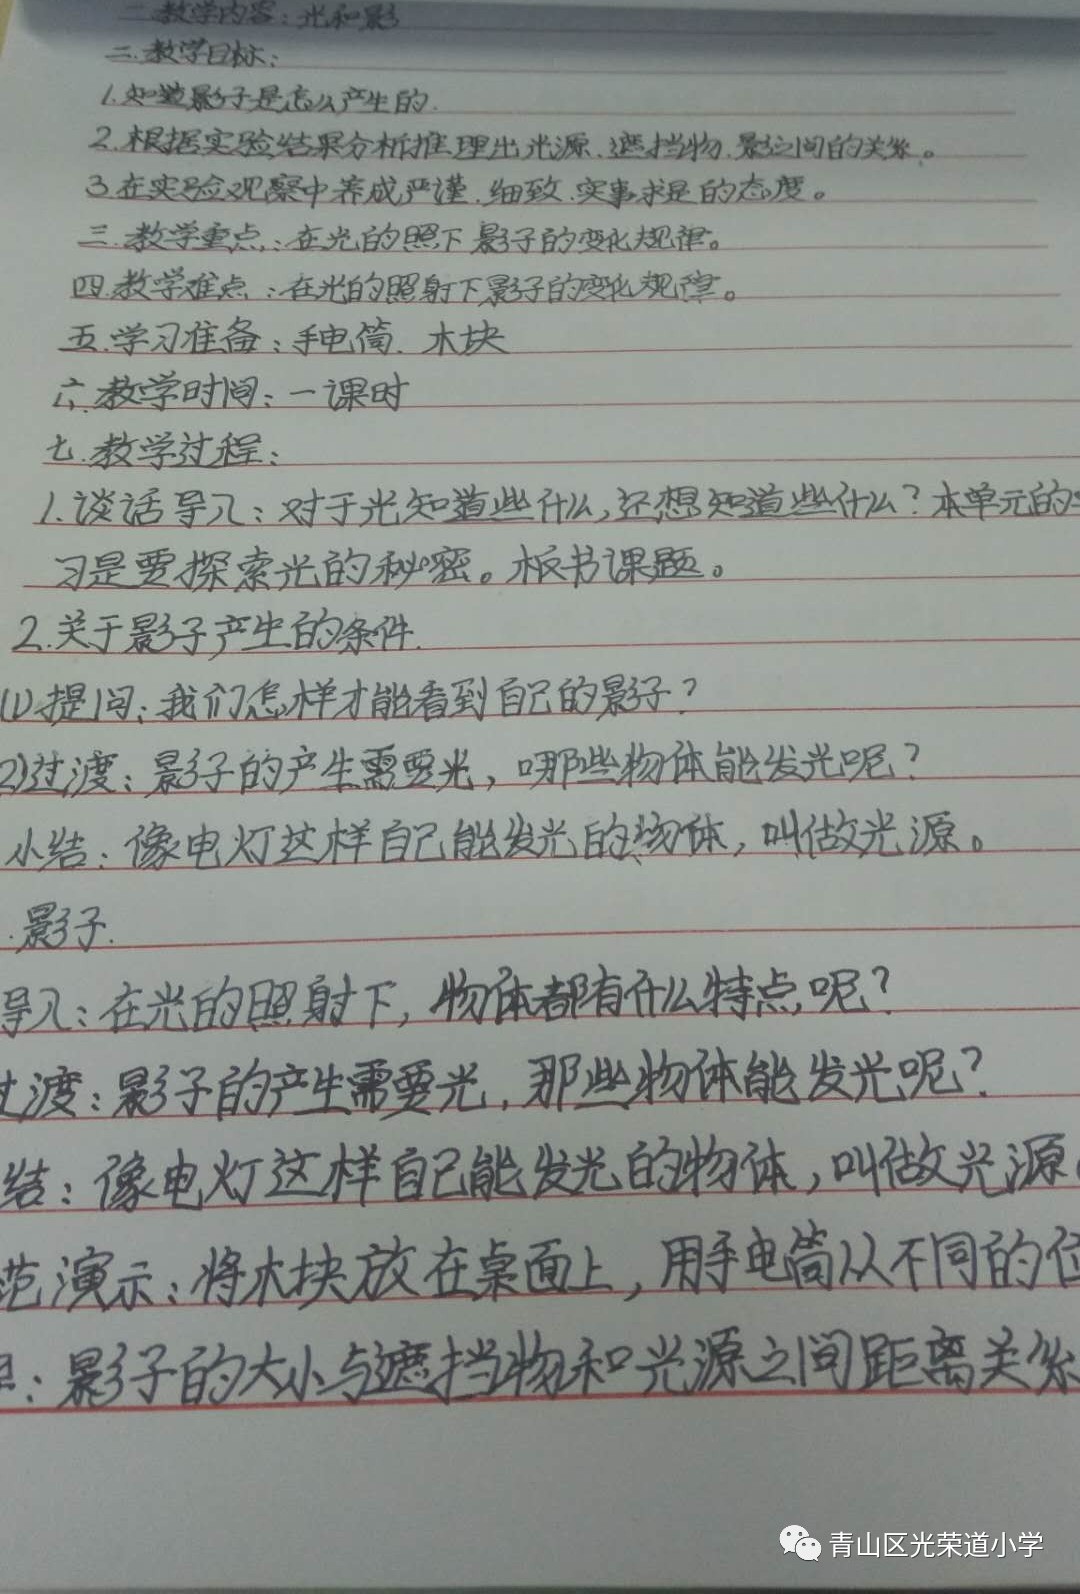 教学内容：光和影
二.教学目标：
1.知道影子是怎么产生的.
2.根据实验结果分析推理出光源.遮挡物.影之间的关系。
3.在实验观察中养成严谨.细致.实事求是的态度。
三.教学重点：在光的照下影子的变化规律。
四.教学难点：在光的照射下影子的变化规律。
五.学习准备：手电筒.木块
六.教学时间：一课时
七.教学过程：
1.谈话导入：对于光知道些什么,还想知道些什么？本单元的
习是要探索光的秘密。板书课题。
2.关于影子产生的条件.
(1)提问：我们怎样才能看到自己的影子？
2)过渡：影子的产生需要光，哪些物体能发光呢？
小结：像电灯这样自己能发光的物体，叫做光源。
.影子.
导入：在光的照射下，物体都有什么特点呢？
过渡：影子的产生需要光，那些物体能发光呢？
结：像电灯这样自己能发光的物体，叫做光源
范演示：将木块放在桌面上，用手电筒从不同的位
：影子的大小与遮挡物和光源之间距离关系
青山区光荣道小学